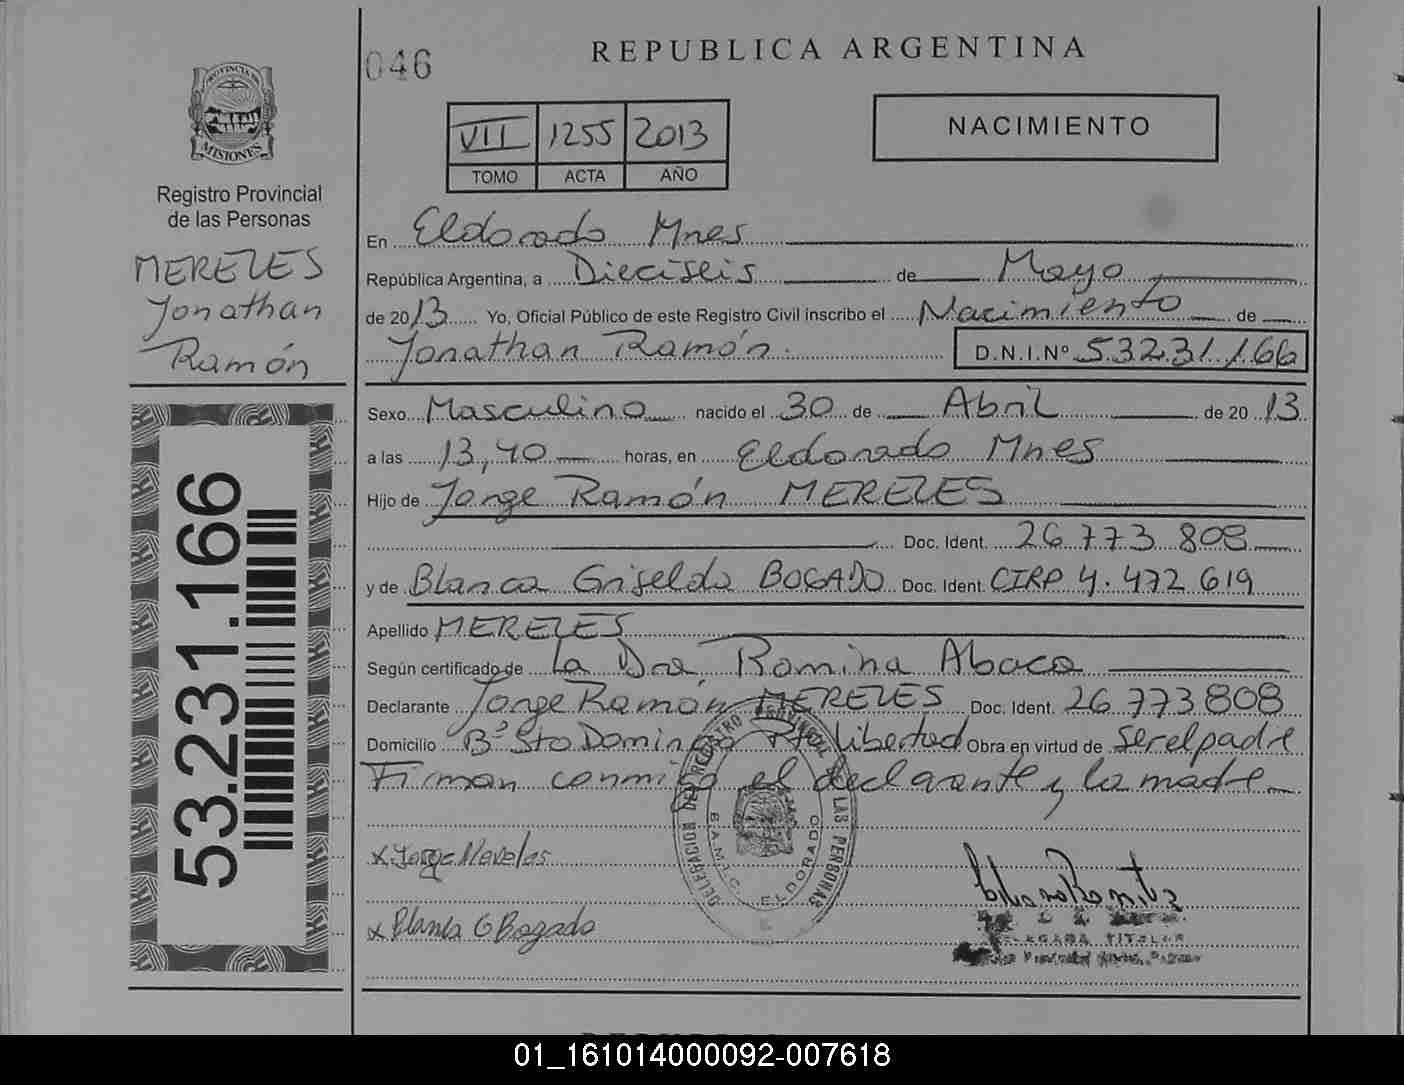 046
REPUBLICA ARGENTINA
VII 1255 2013
TOMO ACTA AÑO
NACIMIENTO
PROVINCIA DE
MISIONES
Registro Provincial
de las Personas
MERELES
Jonathan
Ramón
53.231.166
En Eldorado Mnes
República Argentina, a Dieciseis de Mayo
de 2013 Yo, Oficial Público de este Registro Civil inscribo el Nacimiento de
Jonathan Ramón. D.N.I.Nº 53231.166
Sexo Masculino nacido el 30 de Abril de 2013
a las 13,40 horas, en Eldorado Mnes
Hijo de Jorge Ramón MERELES
Doc. Ident. 26.773.808
y de Blanca Griselda BOGADO Doc. Ident. CIRP 4.472 619
Apellido MERELES
Según certificado de La Dra. Romina Abaca
Declarante Jorge Ramón MERELES Doc. Ident. 26.773808
Domicilio Bº Sto Domingo Pto Libertad Obra en virtud de ser el padre
Firman conmigo el declarante y la madre
x Jorge Mereles
x Blanca G Bogado
DELEGACION DEL REGISTRO PROVINCIAL DE LAS PERSONAS
ELDORADO
TITULAR
01_161014000092-007618